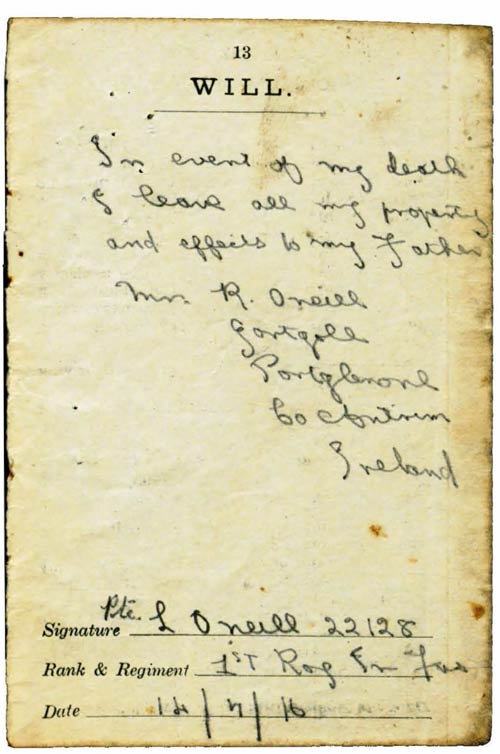 13
WILL.
In event of my death
I leave all my property
and effects to my Father
Mr. R. Oneill
Gortgole
Portglenone
Co Antrim
Ireland
Signature Pte. L Oneill 22128
Rank & Regiment 1ST Roy In Fus
Date 14/7/16